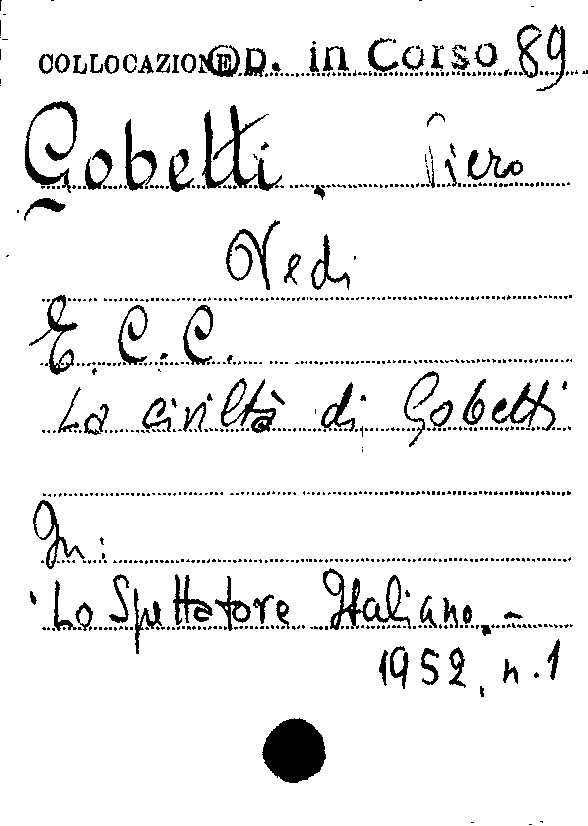 COLLOCAZIONE D. in Corso 89
Gobetti. Piero
Vedi
E. C. C.
La civiltà di Gobetti
In:
Lo Spettatore Italiano. -
1952, n. 1